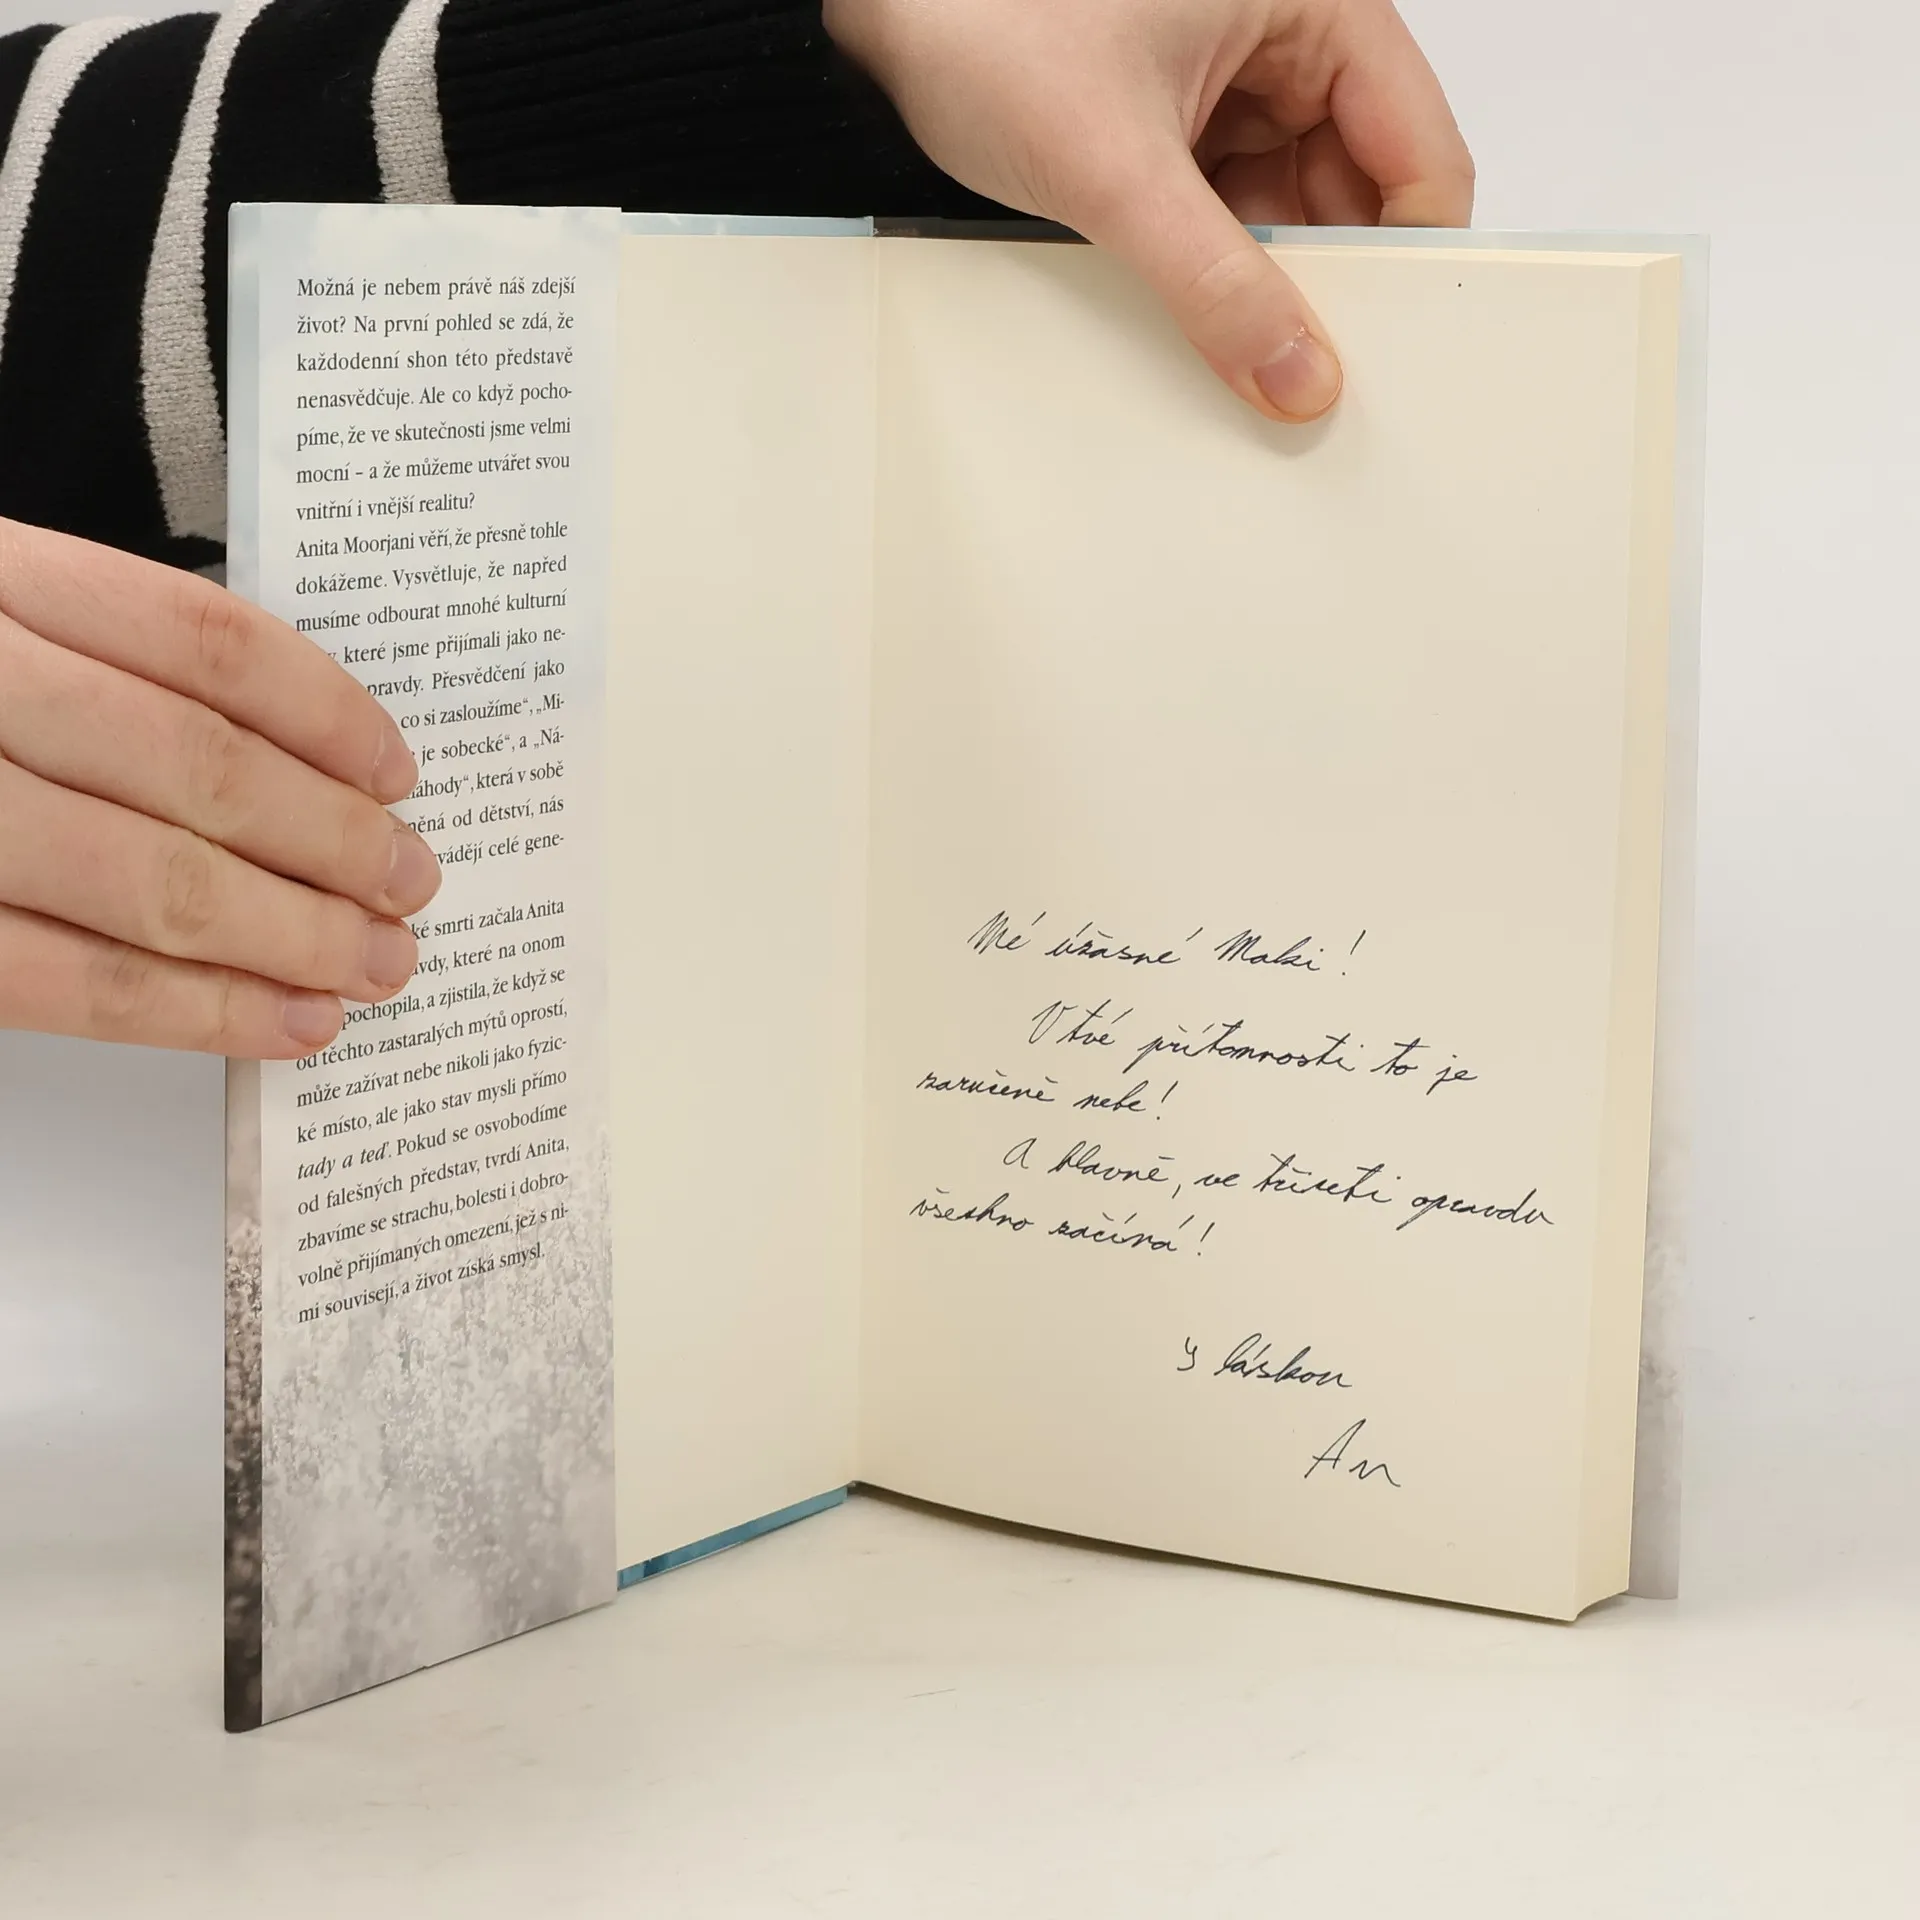 Možná je nebem právě náš zdejší
život? Na první pohled se zdá, že
každodenní shon této představě
nenasvědčuje. Ale co když pocho-
píme, že ve skutečnosti jsme velmi
mocní – a že můžeme utvářet svou
vnitřní i vnější realitu?
Anita Moorjani věří, že přesně tohle
dokážeme. Vysvětluje, že napřed
musíme odbourat mnohé kulturní
které jsme přijímali jako ne-
pravdy. Přesvědčení jako
co si zasloužíme“, „Mi-
je sobecké“, a „Ná-
áhody“, která v sobě
od dětství, nás
vádějí celé gene-
ké smrti začala Anita
avdy, které na onom
pochopila, a zjistila, že když se
od těchto zastaralých mýtů oprostí,
může zažívat nebe nikoli jako fyzic-
ké místo, ale jako stav mysli přímo
tady a teď. Pokud se osvobodíme
od falešných představ, tvrdí Anita,
zbavíme se strachu, bolesti i dobro-
volně přijímaných omezení, jež s ni-
mi souvisejí, a život získá smysl.
Mé úžasné Maki!
V tvé přítomnosti to je
zaručeně nebe!
A hlavně, ve třiceti opravdu
všechno začíná!
S láskou